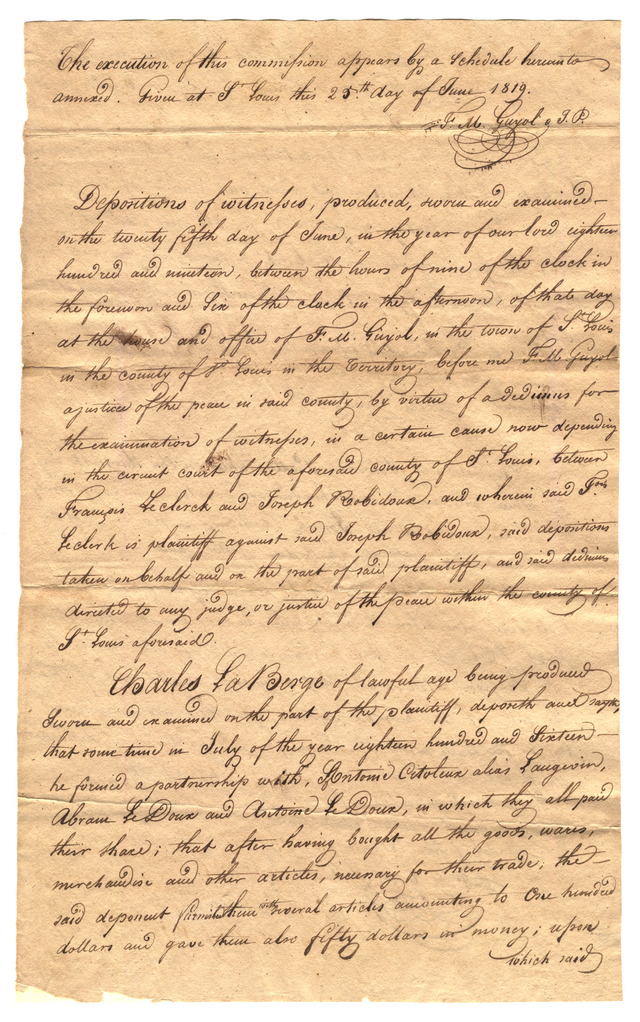 The execution of this commission appears by a schedule hereunto
annexed. Given at St Louis this 25th day of June 1819.
F. M. Guyol, J. P.
Depositions of witnesses, produced, sworn and examined
on the twenty fifth day of June, in the year of our lord eighteen
hundred and nineteen, between the hours of nine of the clock in
the forenoon and Six of the clock in the afternoon, of that day
at the house and office of F. M. Guyol, in the town of St Louis
in the county of St Louis in the Territory, before me F. M. Guyol
a justice of the peace in said county, by virtue of a dedimus for
the examination of witnesses, in a certain cause now depending
in the circuit court of the aforesaid county of St Louis, between
François Leclerck and Joseph Robidoux, and wherein said Fois
Leclerk is plaintiff against said Joseph Robidoux, said depositions
taken on behalf and on the part of said plaintiff, and said dedimus
directed to any judge, or justice of the peace within the county of
St Louis aforesaid.
Charles LaBerge of lawful age being produced
Sworn and examined on the part of the plaintiff, deposeth and sayth,
that some time in July of the year eighteen hundred and Sixteen
he formed a partnership with, Antoine Citoleux alias Langevin,
Abram Le Doux and Antoine Le Doux, in which they all paid
their share; that after having bought all the goods, wares,
merchandise and other articles, necessary for their trade; the
said deponent furnish them with several articles amounting to One hundred
dollars and gave them also fifty dollars in money; upon
which said